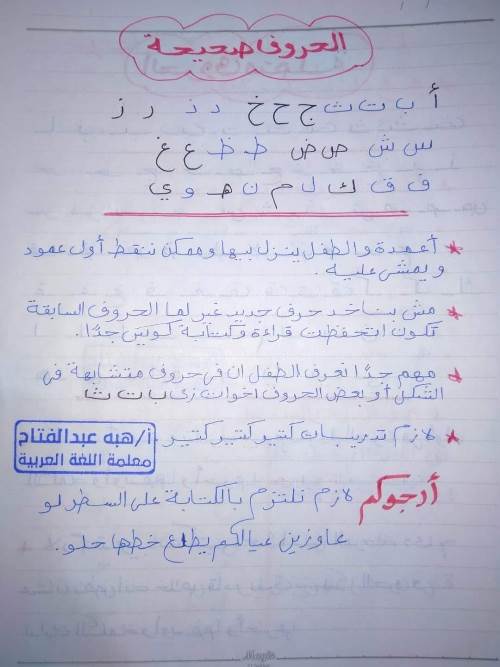 الحروف صحيحة
أ ب ت ث ج ح خ د ذ ر ز
س ش ص ض ط ظ ع غ
ف ق ك ل م ن هـ و ي
* أعمدة والطفل ينزل بيها وممكن ننقط أول عمود
ويمشى عليه.
* مش بناخد حرف جديد غير لما الحروف السابقة
تكون اتحفظت قراءة وكتابة كويس جدًا.
* مهم جدًا نعرف الطفل ان فى حروف متشابهة فى
الشكل أو بعض الحروف اخوات زى ب ت ث
* لازم تدريبات كتير كتير كتير.
أ/هبه عبدالفتاح
معلمة اللغة العربية
أرجوكم لازم نلتزم بالكتابة على السطر لو
عاوزين عيالكم يطلع خطها حلو.